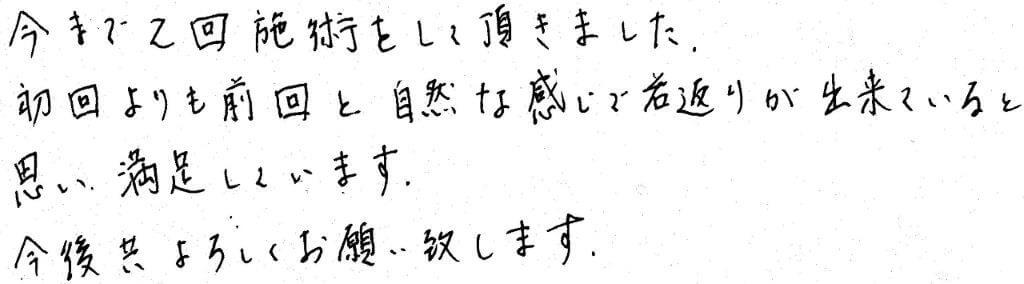 今まで2回施術をして頂きました.
初回よりも前回と自然な感じで若返りが出来ていると
思い、満足しています.
今後共よろしくお願い致します.